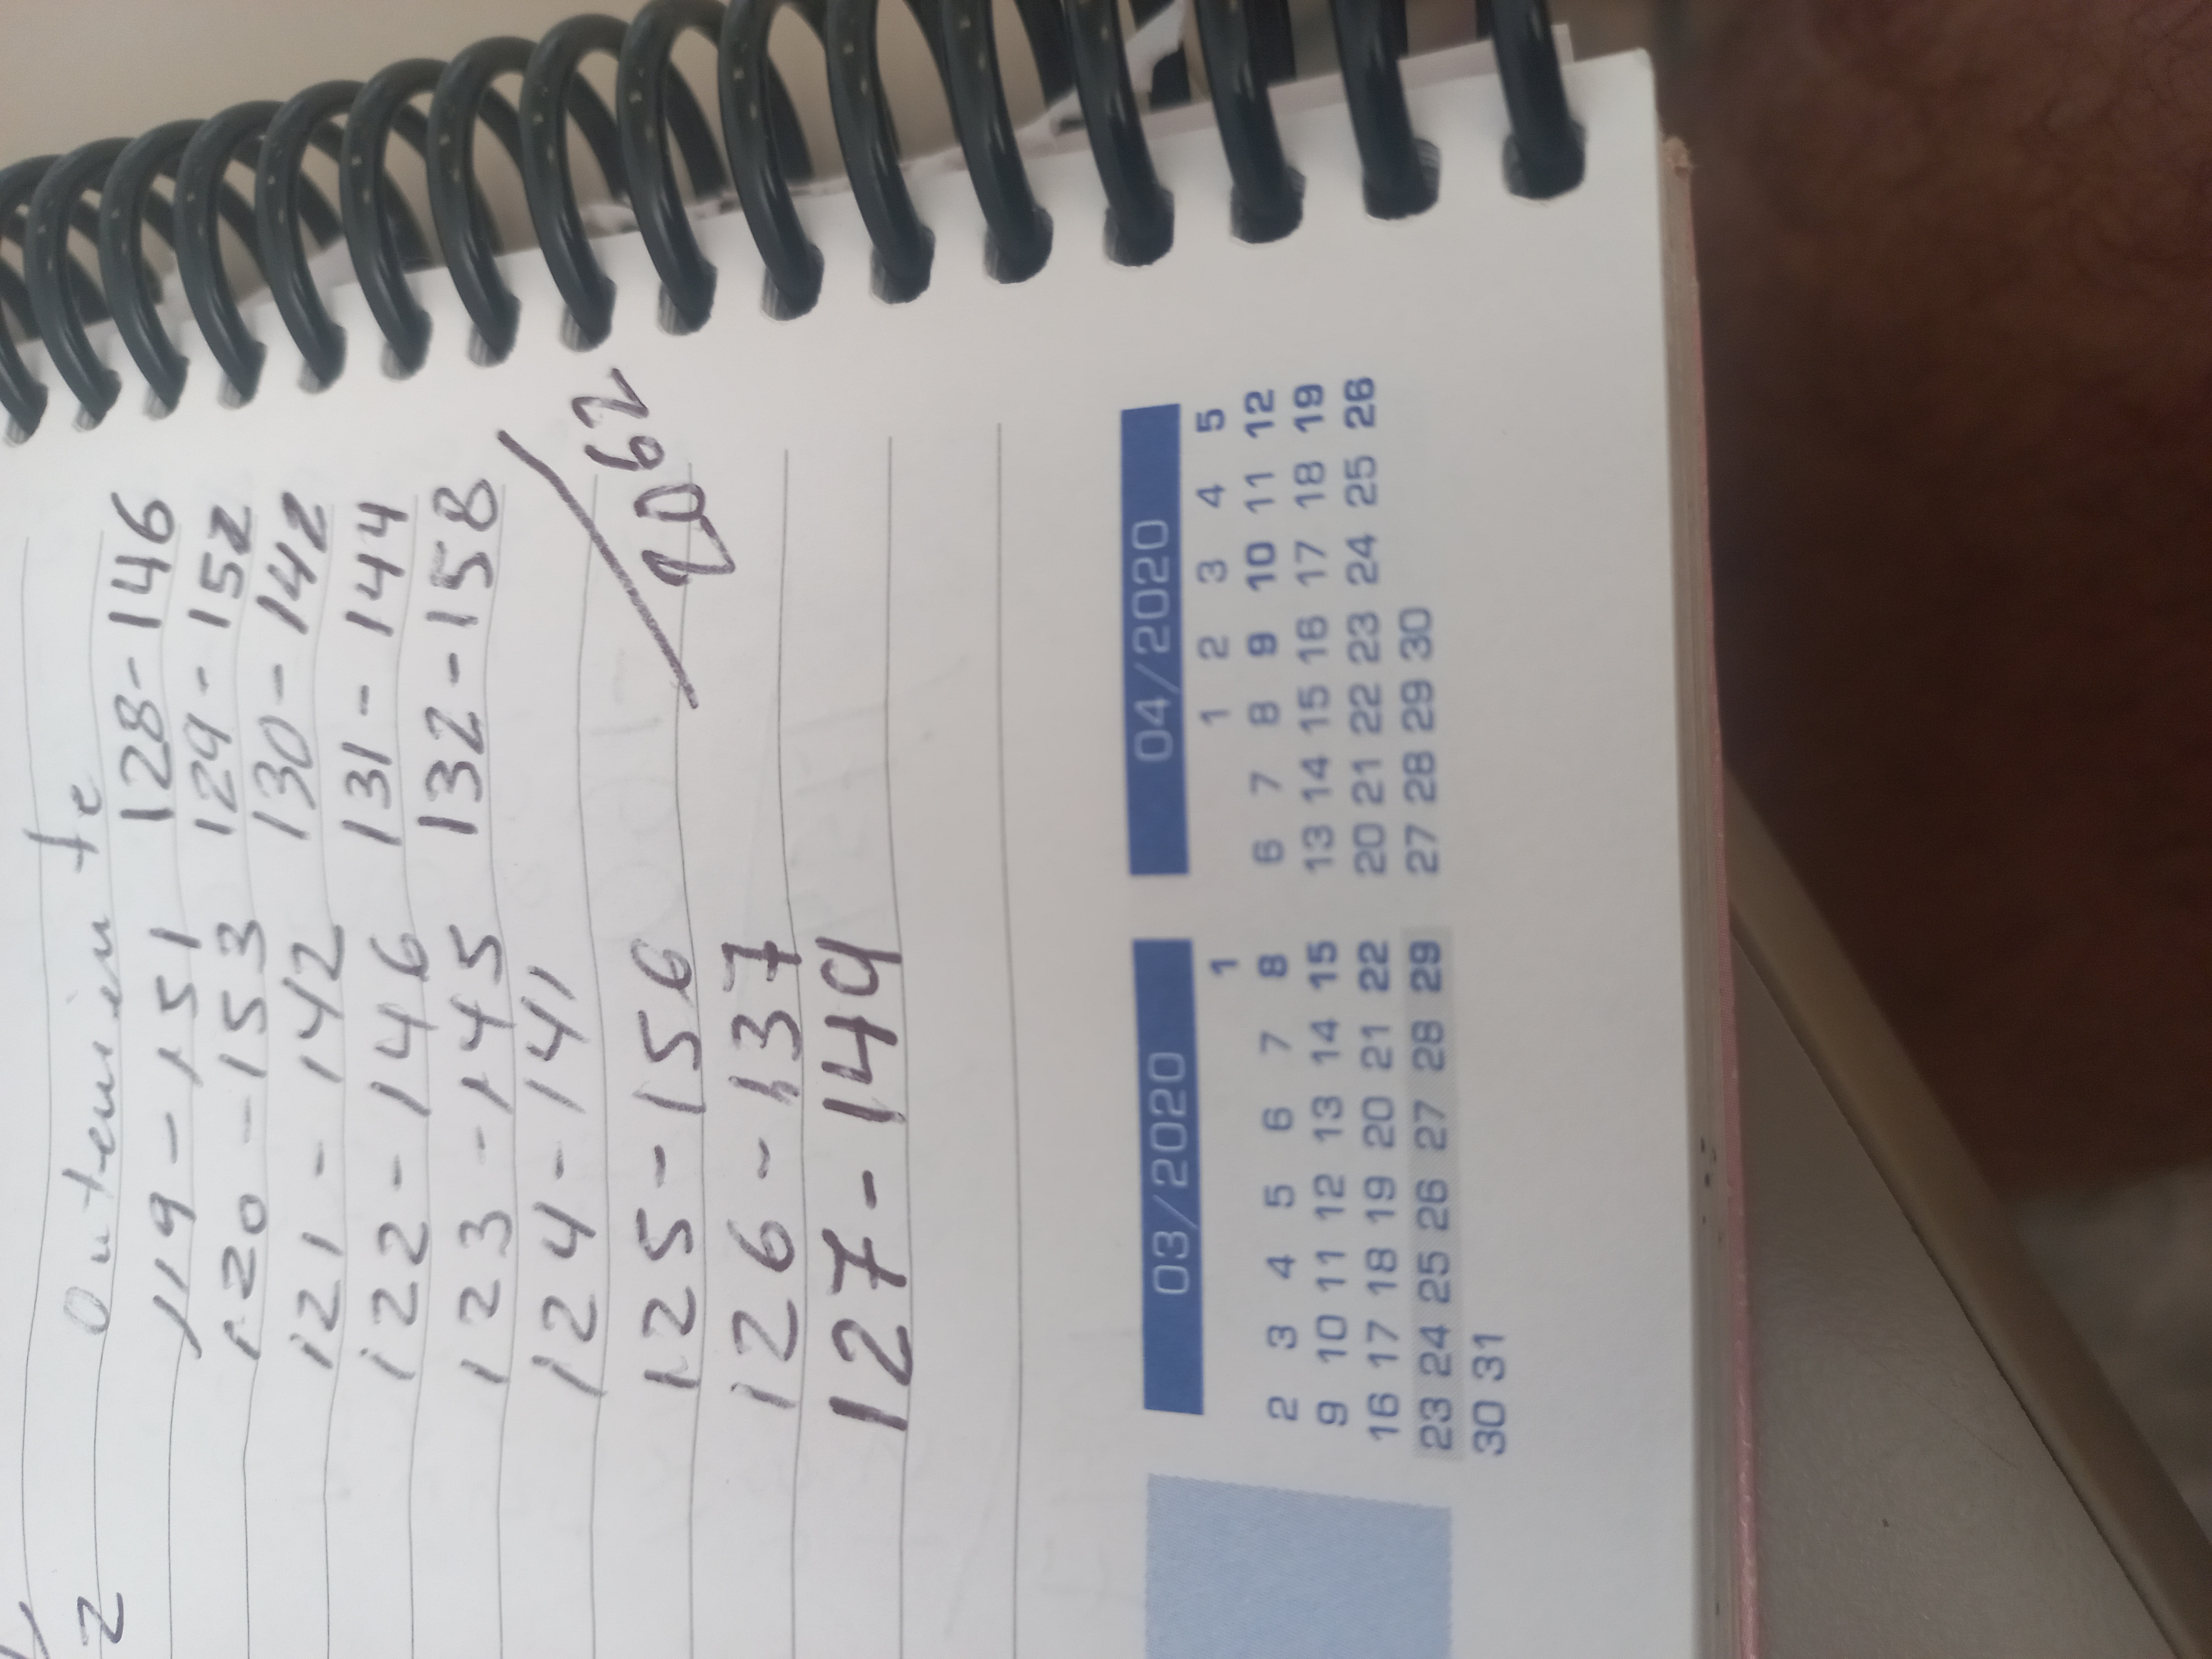 2
119 - 151 128 - 146
120 - 153 129 - 152
121 - 142 130 - 142
122 - 146 131 - 144
123 - 145 132 - 158
124 - 141
125 - 156
126 - 137
127 - 149
2062
03/2020 04/2020
1 1 2 3 4 5
2 3 4 5 6 7 8 6 7 8 9 10 11 12
9 10 11 12 13 14 15 13 14 15 16 17 18 19
16 17 18 19 20 21 22 20 21 22 23 24 25 26
23 24 25 26 27 28 29 27 28 29 30
30 31